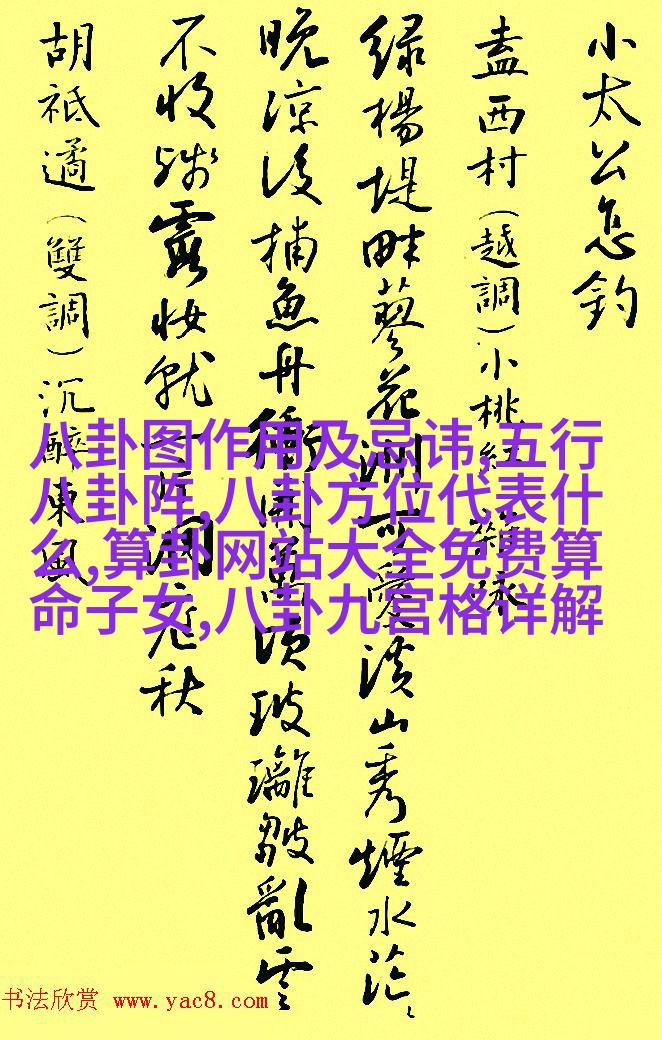 小太公怎釣
盍西村（越調）小桃紅 雜咏
绿楊堤畔蓼花洲可愛溪山秀煙水茫茫
晚涼後捕魚舟衝開萬頃玻璃皺亂雲
不收殘霞妝就一片洞庭秋
胡祗遹（雙調）沉醉東風
八卦图作用及忌讳,五行
八卦阵,八卦方位代表什
么,算卦网站大全免费算
命子女,八卦九宫格详解
书法欣赏 www.yac8.com